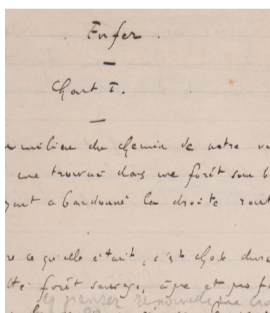 Enfer.
Chant I.
milieu du chemin de notre
me trouvai dans une forêt som
ayant abandonné la droite rout
re ce qu'elle était, c'est chose dur
tte forêt sauvage, âpre et
penser renouvelle